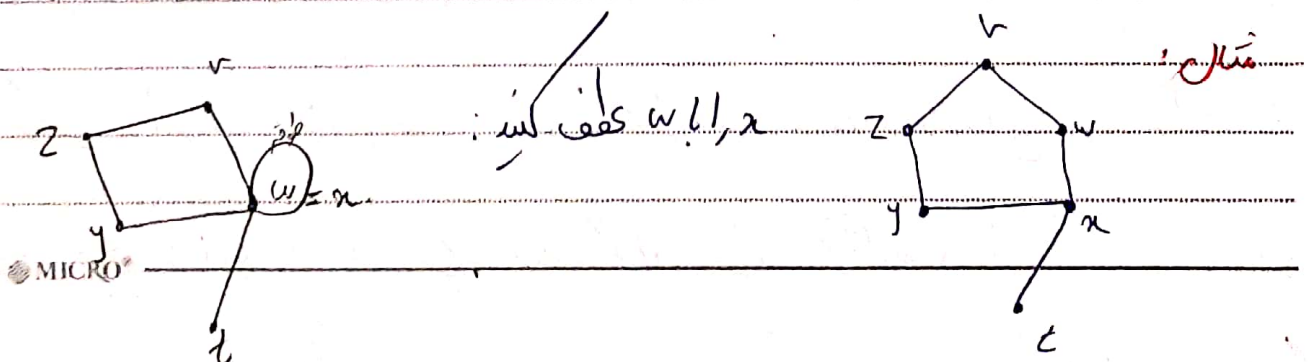 مثال :
v
z
w
y
x
t
x را با w کنید :
v
z
w = x
y
t
MICRO